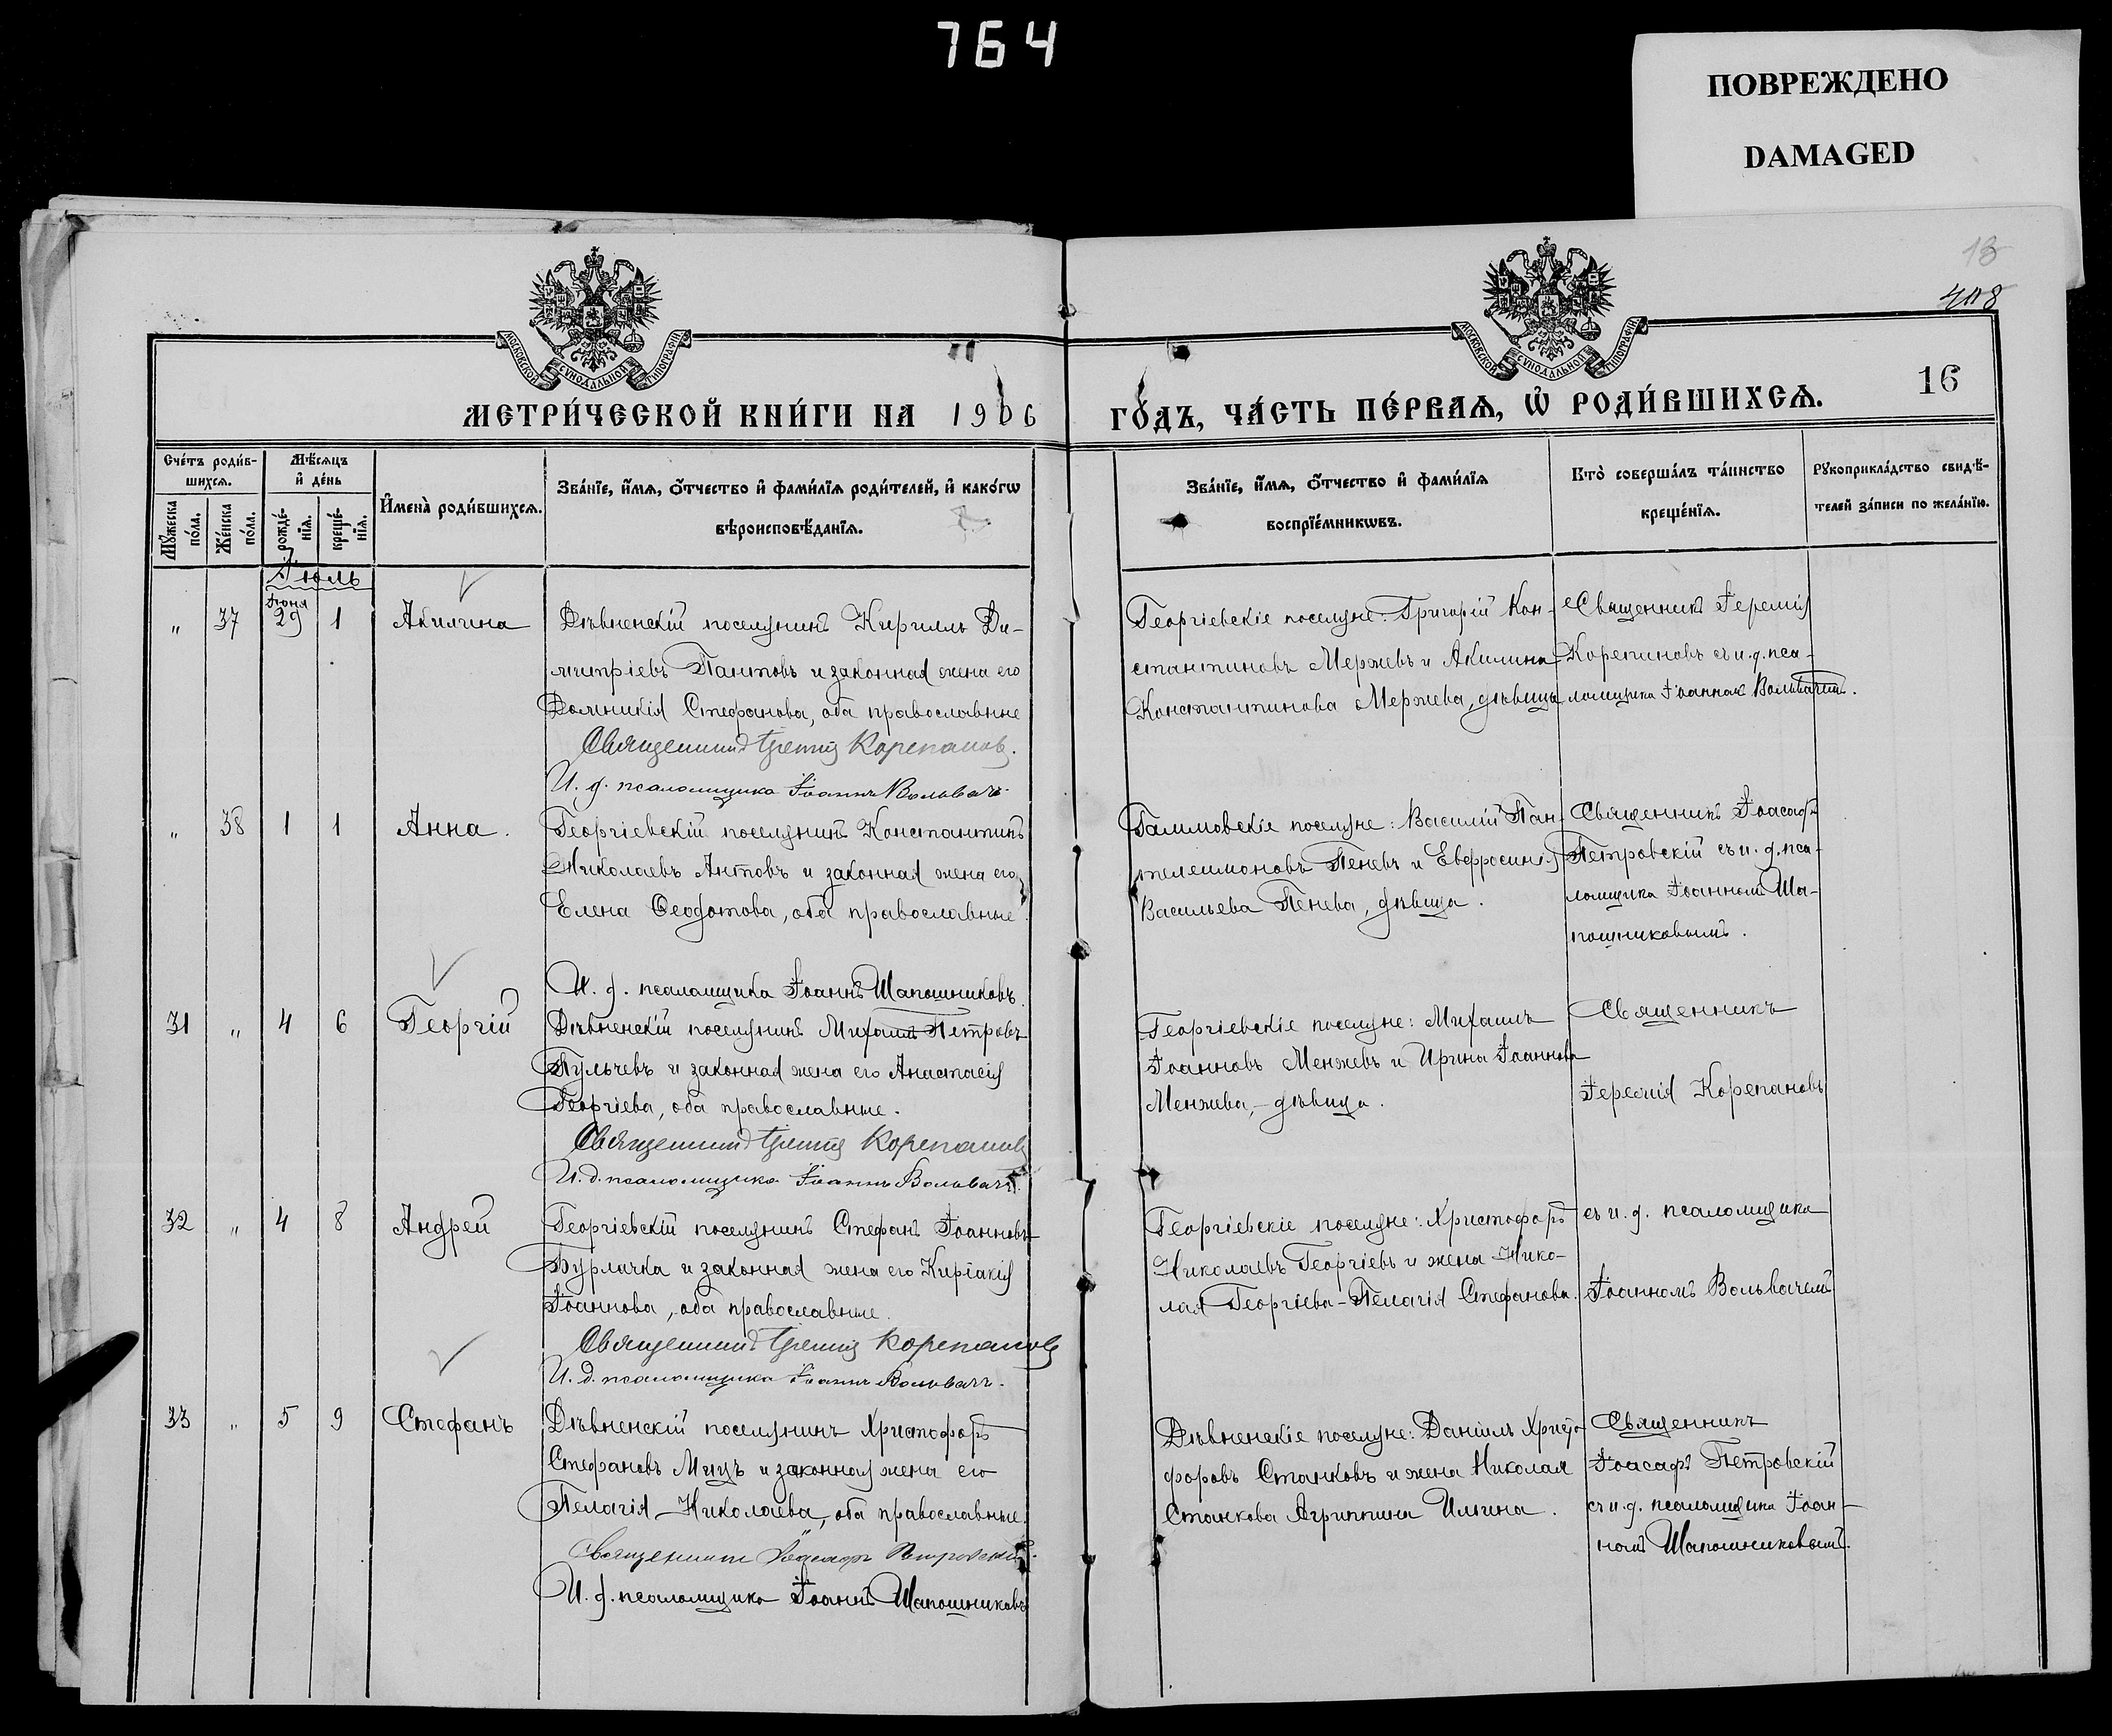 764
ПОВРЕЖДЕНО
DAMAGED
13
408
16
МОСКОВСКОЙ СѴНОДАЛЬНОЙ ТИПОГРАФІИ
МОСКОВСКОЙ СѴНОДАЛЬНОЙ ТИПОГРАФІИ
МЕТРИ́ЧЕСКОЙ КНИ́ГИ НА 1906 ГО́ДЪ, ЧА́СТЬ ПЕ́РВАѦ, Ѡ҆ РОДИ́ВШИХСѦ.
Сче́тъ роди́вшихсѧ.
Мꙋ́жеска по́ла.
Же́нска по́ла.
Мѣ́сѧцъ и҆ де́нь
рожде́нїѧ.
креще́нїѧ.
И҆мена̀ роди́вшихсѧ.
Зва́нїе, и҆́мѧ, ѻ҆́тчество и҆ фами́лїѧ роди́телей, и҆ како́гѡ
вѣроисповѣ́данїѧ.
Зва́нїе, и҆́мѧ, ѻ҆́тчество и҆ фами́лїѧ
воспрїе́мникѡвъ.
Кто̀ соверша́лъ та́инство
креще́нїѧ.
Рꙋкоприкла́дство свидѣ́-
телей за́писи по жела́нїю.
Іюль
Іюня
„ 37 29 1 Акилина
Дѣвненскій поселянинъ Кириллъ Ди-
митріевъ Пантовъ и законная жена его
Домникія Стефанова, оба православные
Священникъ Іеремія Корепановъ.
И. д. псаломщика Іоаннъ Вольвачъ.
Георгіевскіе поселяне: Григорій Кон-
стантиновъ Мержевъ и Акилина
Константинова Мержева, дѣвица
Священникъ Іеремія
Корепановъ съ и. д. пса-
ломщика Іоанномъ Вольвачемъ.
„ 38 1 1 Анна.
Георгіевскій поселянинъ Константинъ
Николаевъ Антовъ и законная жена его
Елена Ѳеодотова, оба православные.
И. д. псаломщика Іоаннъ Шапошниковъ.
Василій Пан-
телеимоновъ Пеневъ и Евфросинія
Васильева Пенева, дѣвица.
Священникъ Іоасафъ
Петровскій съ и. д. пса-
ломщика Іоанномъ Ша-
пошниковымъ.
31 „ 4 6 Георгій
Дѣвненскій поселянинъ Михаилъ Петровъ
Пульчевъ и законная жена его Анастасія
Георгіева, оба православные.
Священникъ Іеремія Корепановъ
И. д. псаломщика Іоаннъ Вольвачъ.
Георгіевскіе поселяне: Михаилъ
Іоанновъ Менжевъ и Ирина Іоаннова
Менжева, – дѣвица.
Священникъ
Іеремія Корепановъ
32 „ 4 8 Андрей
Георгіевскій поселянинъ Стефанъ Іоанновъ
Бурлачка и законная жена его Киріакія
Іоаннова, оба православные.
Священникъ Іеремія Корепановъ
И. д. псаломщика Іоаннъ Вольвачъ.
Георгіевскіе поселяне: Христофоръ
Николаевъ Георгіевъ и жена Нико-
лая Георгіева – Пелагія Стефанова.
съ и. д. псаломщика
Іоанномъ Вольвачемъ
33 „ 5 9 Стефанъ
Дѣвненскій поселянинъ Христофоръ
Стефановъ Мицъ и законная жена его
Пелагія Николаева, оба православные.
Священникъ Іоасафъ Петровскій.
И. д. псаломщика Іоаннъ Шапошниковъ
Дѣвненскіе поселяне: Даніилъ Христо-
форовъ Станковъ и жена Николая
Станкова Агриппина Ильина.
Священникъ
Іоасафъ Петровскій
съ и. д. псаломщика Іоан-
номъ Шапошниковымъ.